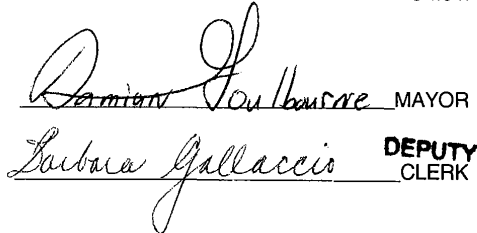 Damian Goulbourne MAYOR
Barbara Gallaccio DEPUTY
CLERK